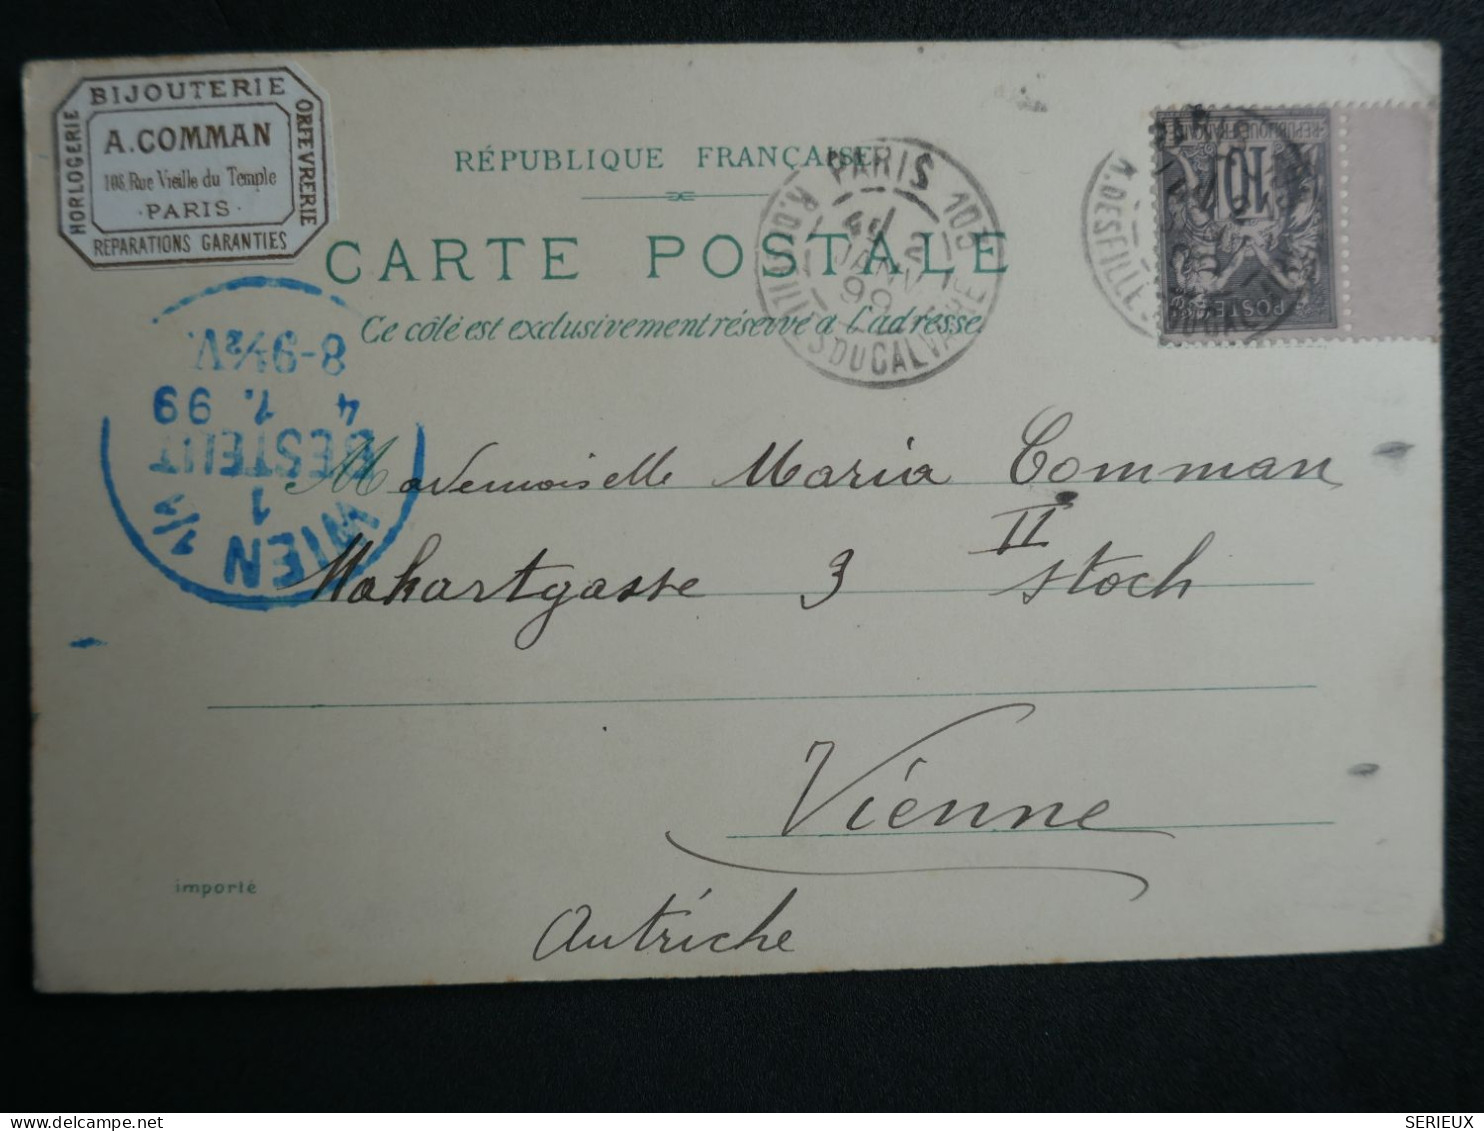 BIJOUTERIE
HORLOGERIE
ORFEVRERIE
A. COMMAN
108, Rue Vieille du Temple
· PARIS ·
REPARATIONS GARANTIES
RÉPUBLIQUE FRANÇAISE
CARTE POSTALE
Ce côté est exclusivement réservé à l'adresse.
PARIS 103
2
JANV
99
R. DES FILLES DU CALVAIRE
R. DES FILLES DU CALVAIRE
REPUBLIQUE FRANÇAISE
10
POSTES
WIEN 1/1
1
BESTELLT
4 1. 99
8-9½V.
Mademoiselle Maria Comman
Makartgasse 3 II Stoch
Vienne
Autriche
importé
SERIEUX